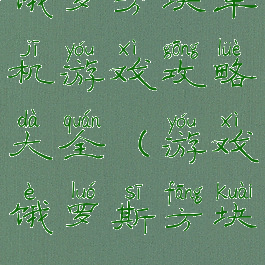 俄罗方块单
jī yóu xì gōng lüè
机游戏攻略
dà quán yóu xì
大全(游戏
è luó sī fāng kuài
俄罗斯方块